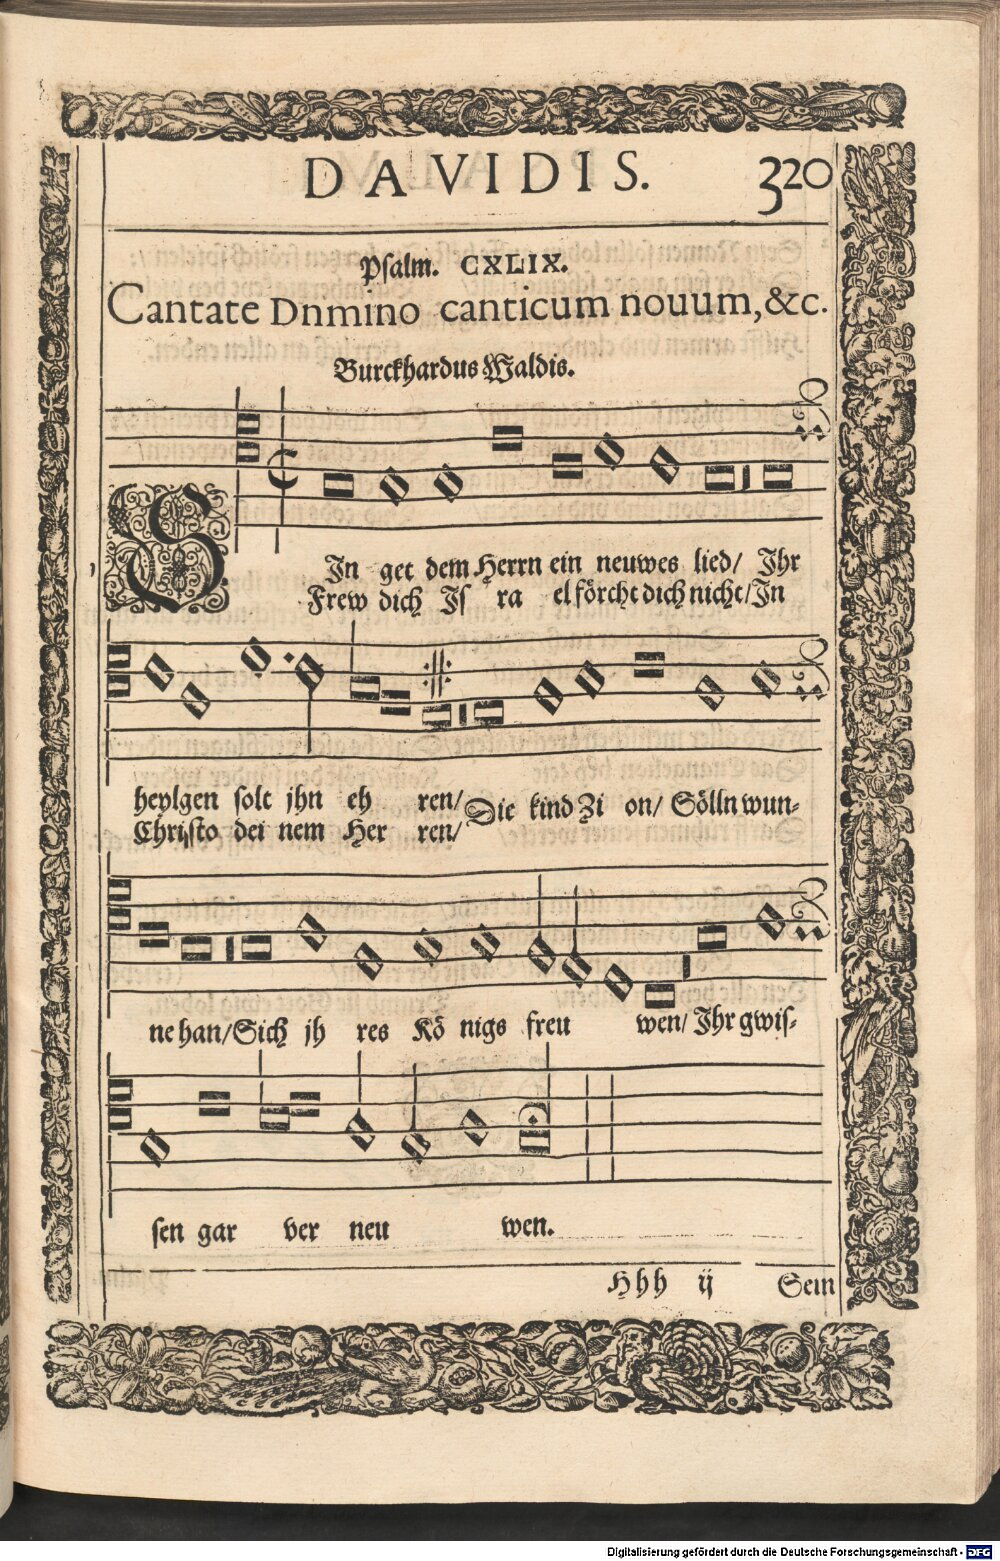 DAVIDIS. 320
Psalm. CXLIX.
Cantate Dnmino canticum nouum, &c.
Burckhardus Waldis.
SIn get dem Herrn ein neuwes lied/ Ihr
Frew dich Is ra el förcht dich nicht/ In
heylgen solt jhn eh ren/ Die kind Zi on/ Sölln wun-
Christo dei nem Her ren/
ne han/ Sich jh res Kö nigs freu wen/ Ihr gwis-
sen gar ver neu wen.
Hhh ij Sein
Digitalisierung gefördert durch die Deutsche Forschungsgemeinschaft - DFG